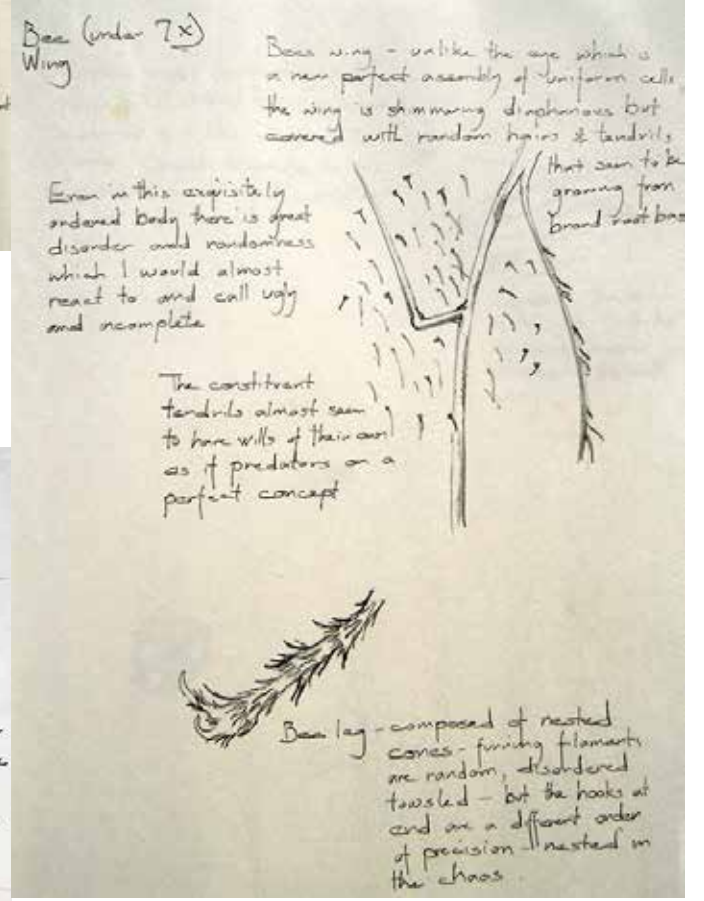 Bee (under 7x)
Wing
Bees wing - unlike the eye which is
a near perfect assembly of uniform cells
the wing is shimmering diaphanous but
covered with random hairs & tendrils
that seem to be
growing from
broad root bas
Even in this exquisitely
ordered body there is great
disorder and randomness
which I would almost
react to and call ugly
and incomplete
The constituent
tendrils almost seem
to have wills of their own
as if predators on a
perfect concept
Bee leg - composed of nested
cones - filaments
are random, disordered
towsled - but the hooks at
end are a different order
of precision - nested in
the chaos.